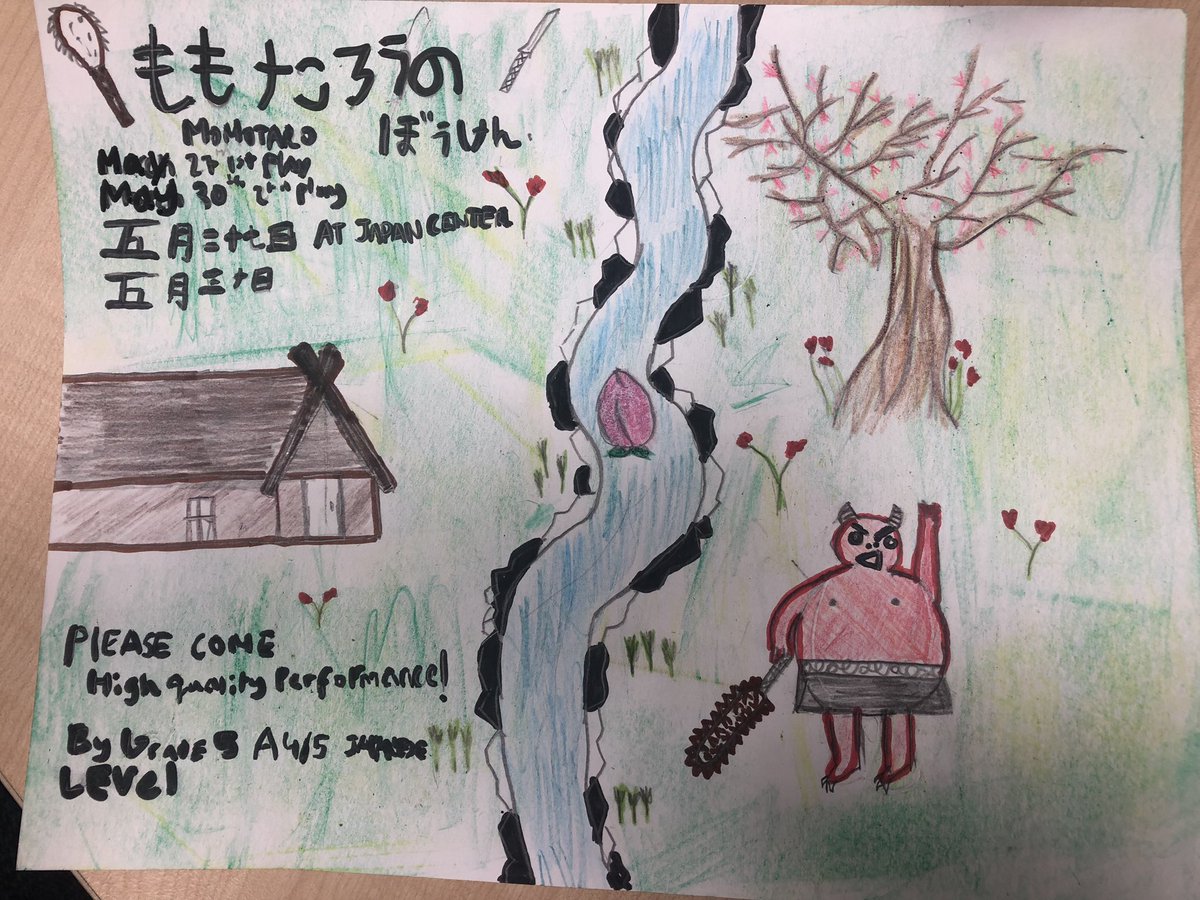 ももたろうの
MOMOTARO ぼうけん.
May 27 1st Play
May 30th 2nd Play
五月二十七日 AT JAPAN CENTER
五月三十日
PLEASE COME
High quality Performance!
By Grade 5 A 4/5 JAPANESE
LEVEl